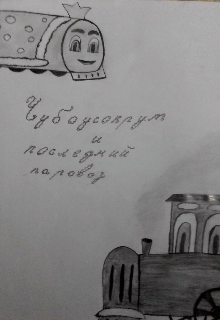 Чубаусокрут
и
последний
паровоз